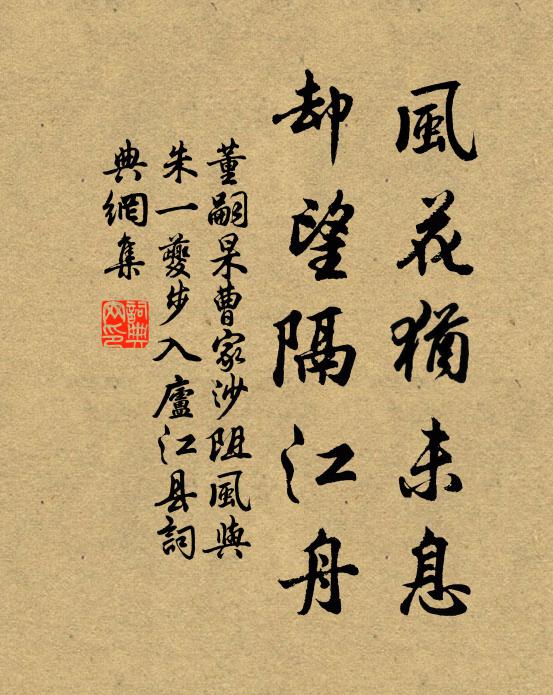 風花猶未息
却望隔江舟
董嗣杲曹家沙阻風與
朱一夔步入廬江县詞
典網集
詞典
网印